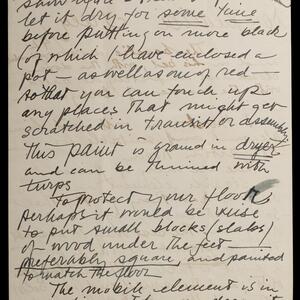 let it dry for some time
before putting on more black
(of which I have enclosed a
pot — as well as one of red —
so that you can touch up
any places that might get
scratched in transit or assembly
This paint is ground in dryer
and can be thinned with
turps
To protect your floor
perhaps it would be wise
to put small blocks (slabs)
of wood under the feet —
preferably square, and painted
to match the floor
The mobile element is in